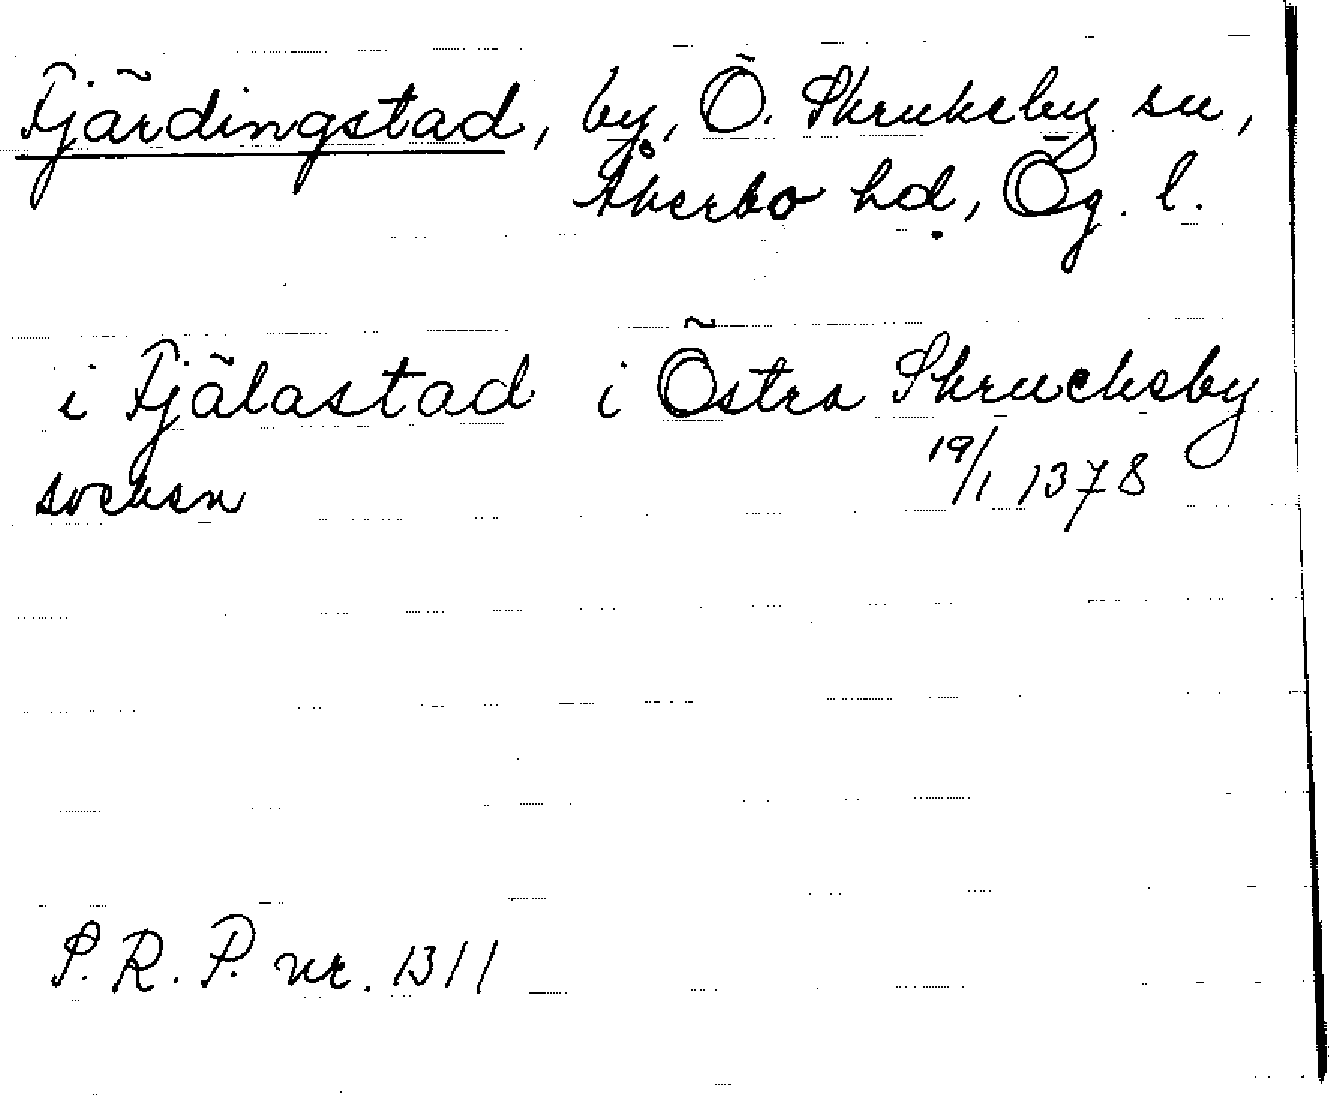 Fjärdingstad, by, Ö. Skruksby sn,
Åkerbo hd, Ög. l.
i Fjälastad i Östra Skrucksby
socken 19/1 1378
S. R. P. nr. 1311